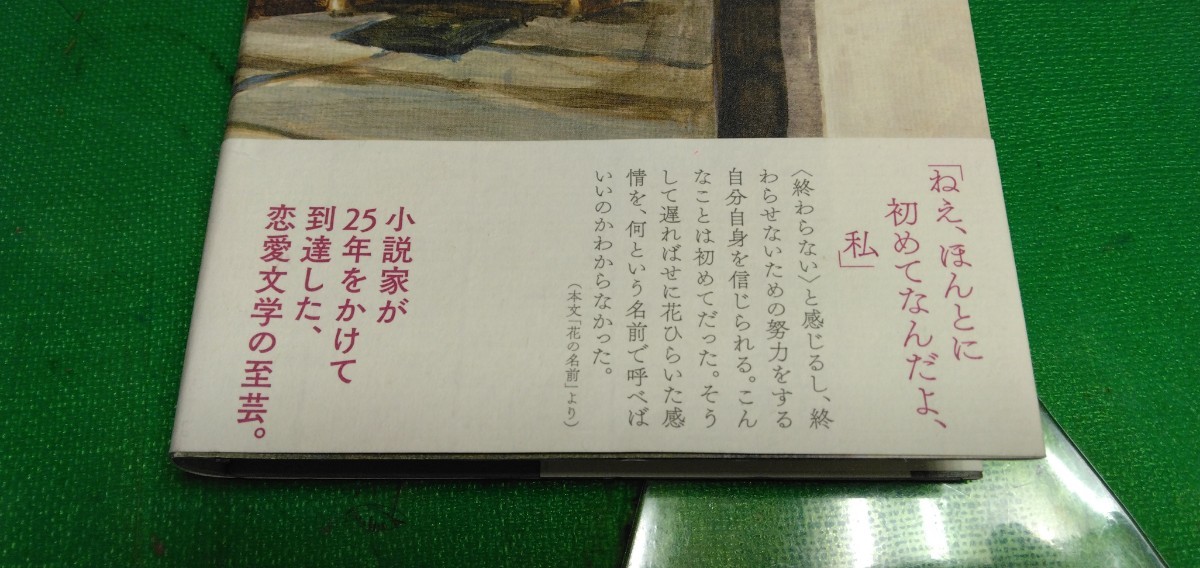 「ねえ、ほんとに
初めてなんだよ、
私」
〈終わらない〉と感じるし、終
わらせないための努力をする
自分自身を信じられる。こん
なことは初めてだった。そう
して遅ればせに花ひらいた感
情を、何という名前で呼べば
いいのかわからなかった。
（本文「花の名前」より）
小説家が
25年をかけて
到達した、
恋愛文学の至芸。